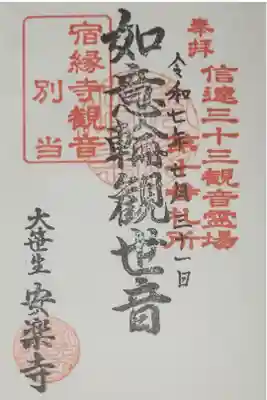 奉拝
信達三十三観音霊場
札所
令和七年廿月三十一日
如意輪観世音
宿縁寺観音
別当
大笹生 安楽寺